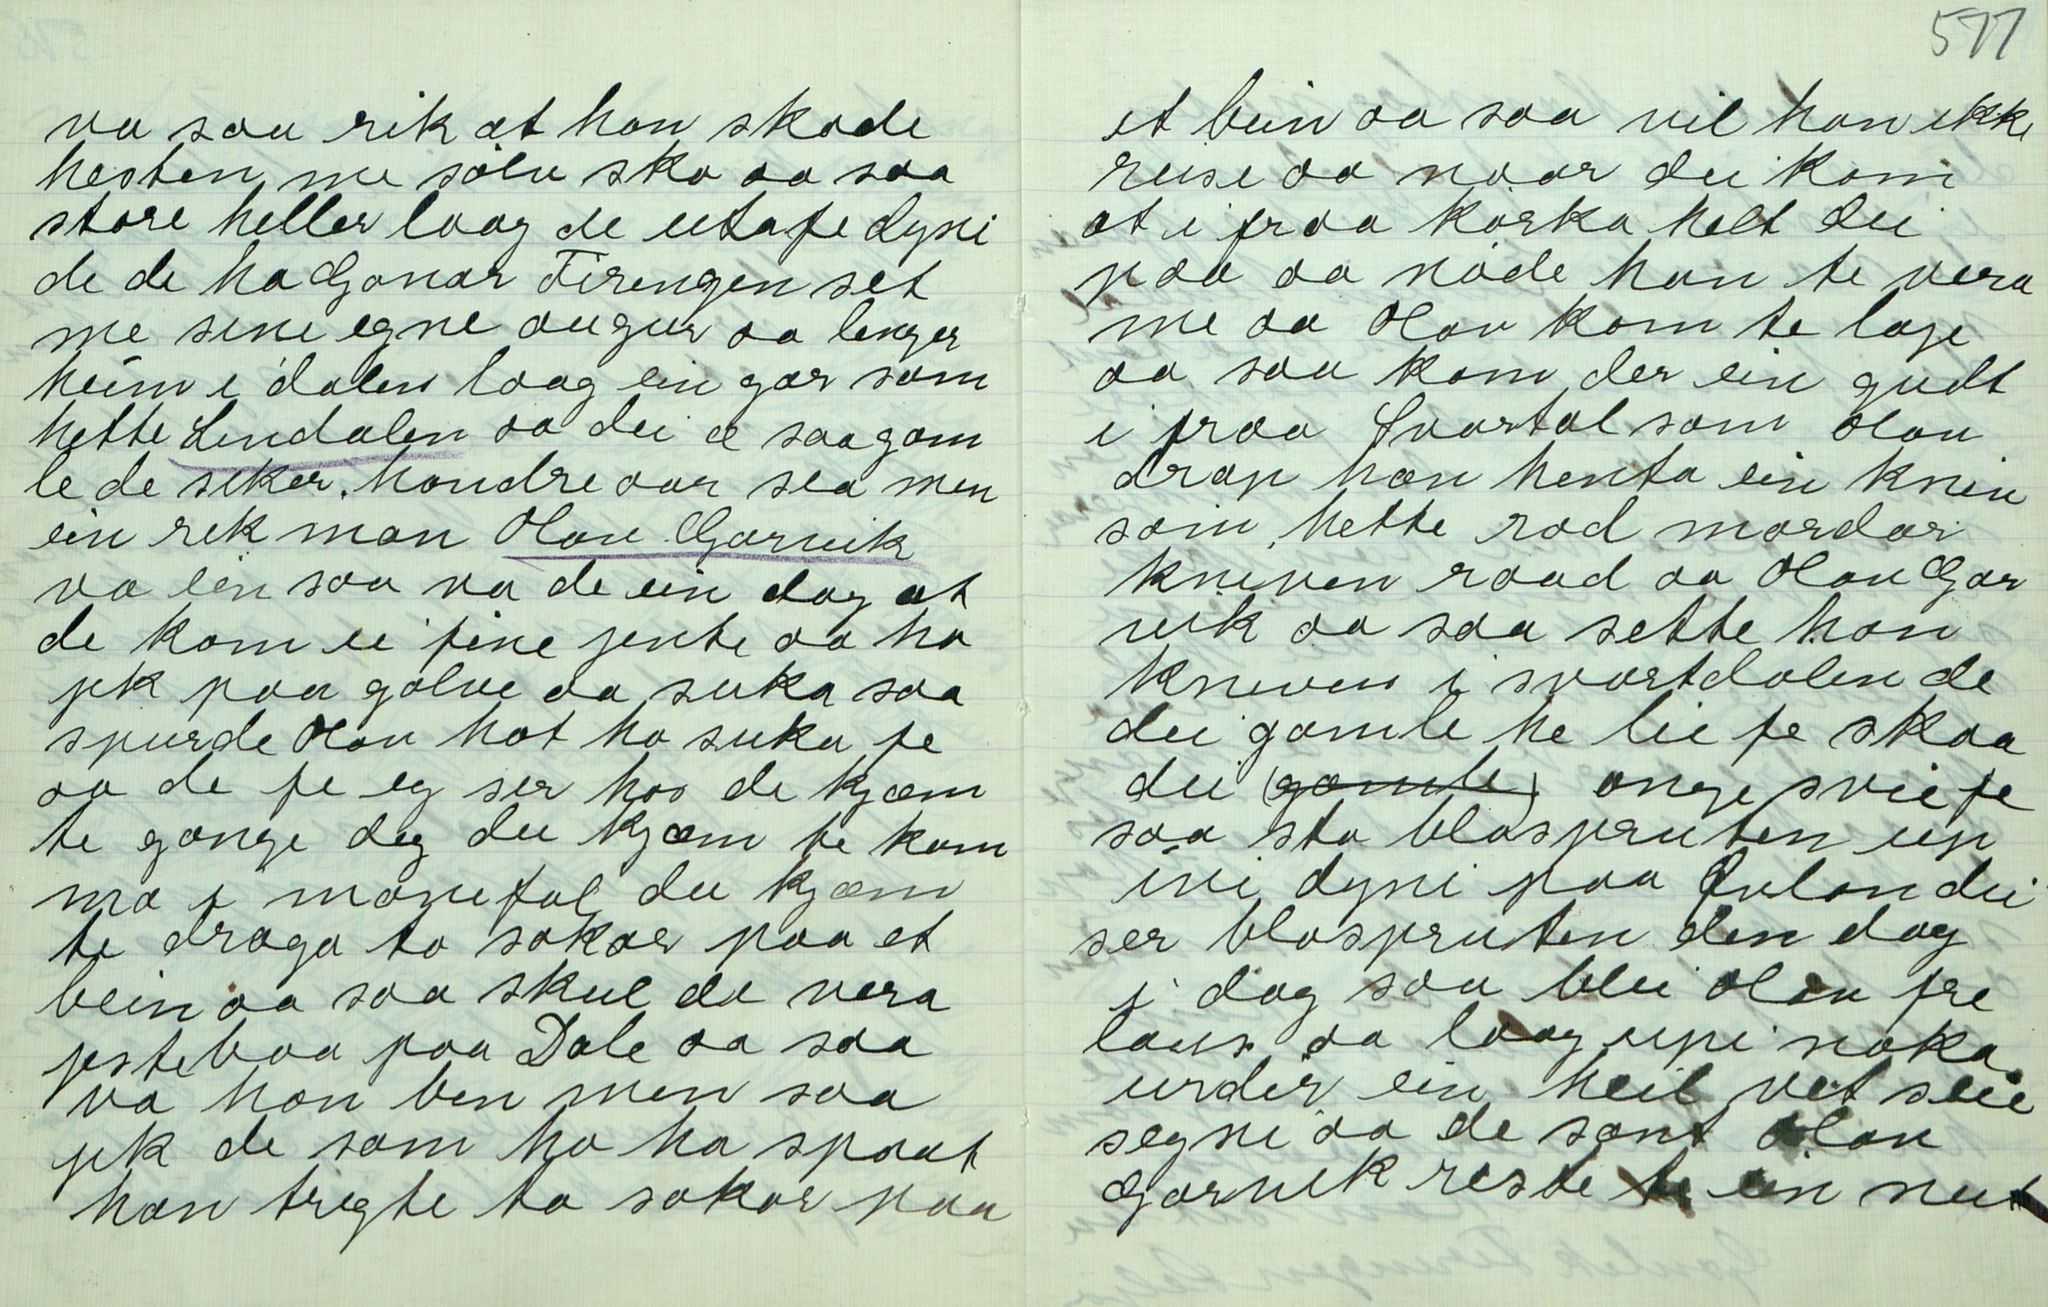 va saa rik at han skode
hesten me sölv sko aa saa
store heller laag de utafe dyni
de de ha Gonar Tirengen set
me sine egne augur aa lenger
heim i dalen laag ein gar som
hette Lindalen aa dei æ saa gam
le de siker hondre aar sea men
ein rik man Olav Garvik
va ein saa va de ein dag at
de kom ei fine jente aa ho
jik paa golve aa suka saa
spurde Olav hot ho suka fe
aa de fe eg ser hos de kjæm
te gange deg du kjæm te kom
ma i manefal du kjæm
te draga to sokar paa et
bein aa saa skul da vera
jsteboa paa Dale aa saa
va han ben men saa
jik de som ho ha spaat
han trigte to sokar paa
577
et bein aa saa vil han ikke
reise aa naar dei kom
at i fraa korka helt dei
paa aa nöde han te vera
me aa Olav kom te lage
aa saa kom der ein gudt
i fraa Svartal som Olav
drap han henta ein kniv
som hette rod mordar
kniven raad aa Olav Gar
vik aa saa sette han
kniven i svartdalen de
dei gamle he lie fe skaa
dei (gamle) onge svie fe
saa sto blospruten up
ini dyni paa Qvlan dei
ser blospruten den dag
i dag saa blei Olav fre
laus aa laag upi noka
urder ein heil vet seie
segni aa de sant Olav
Garvik reste te ein nut